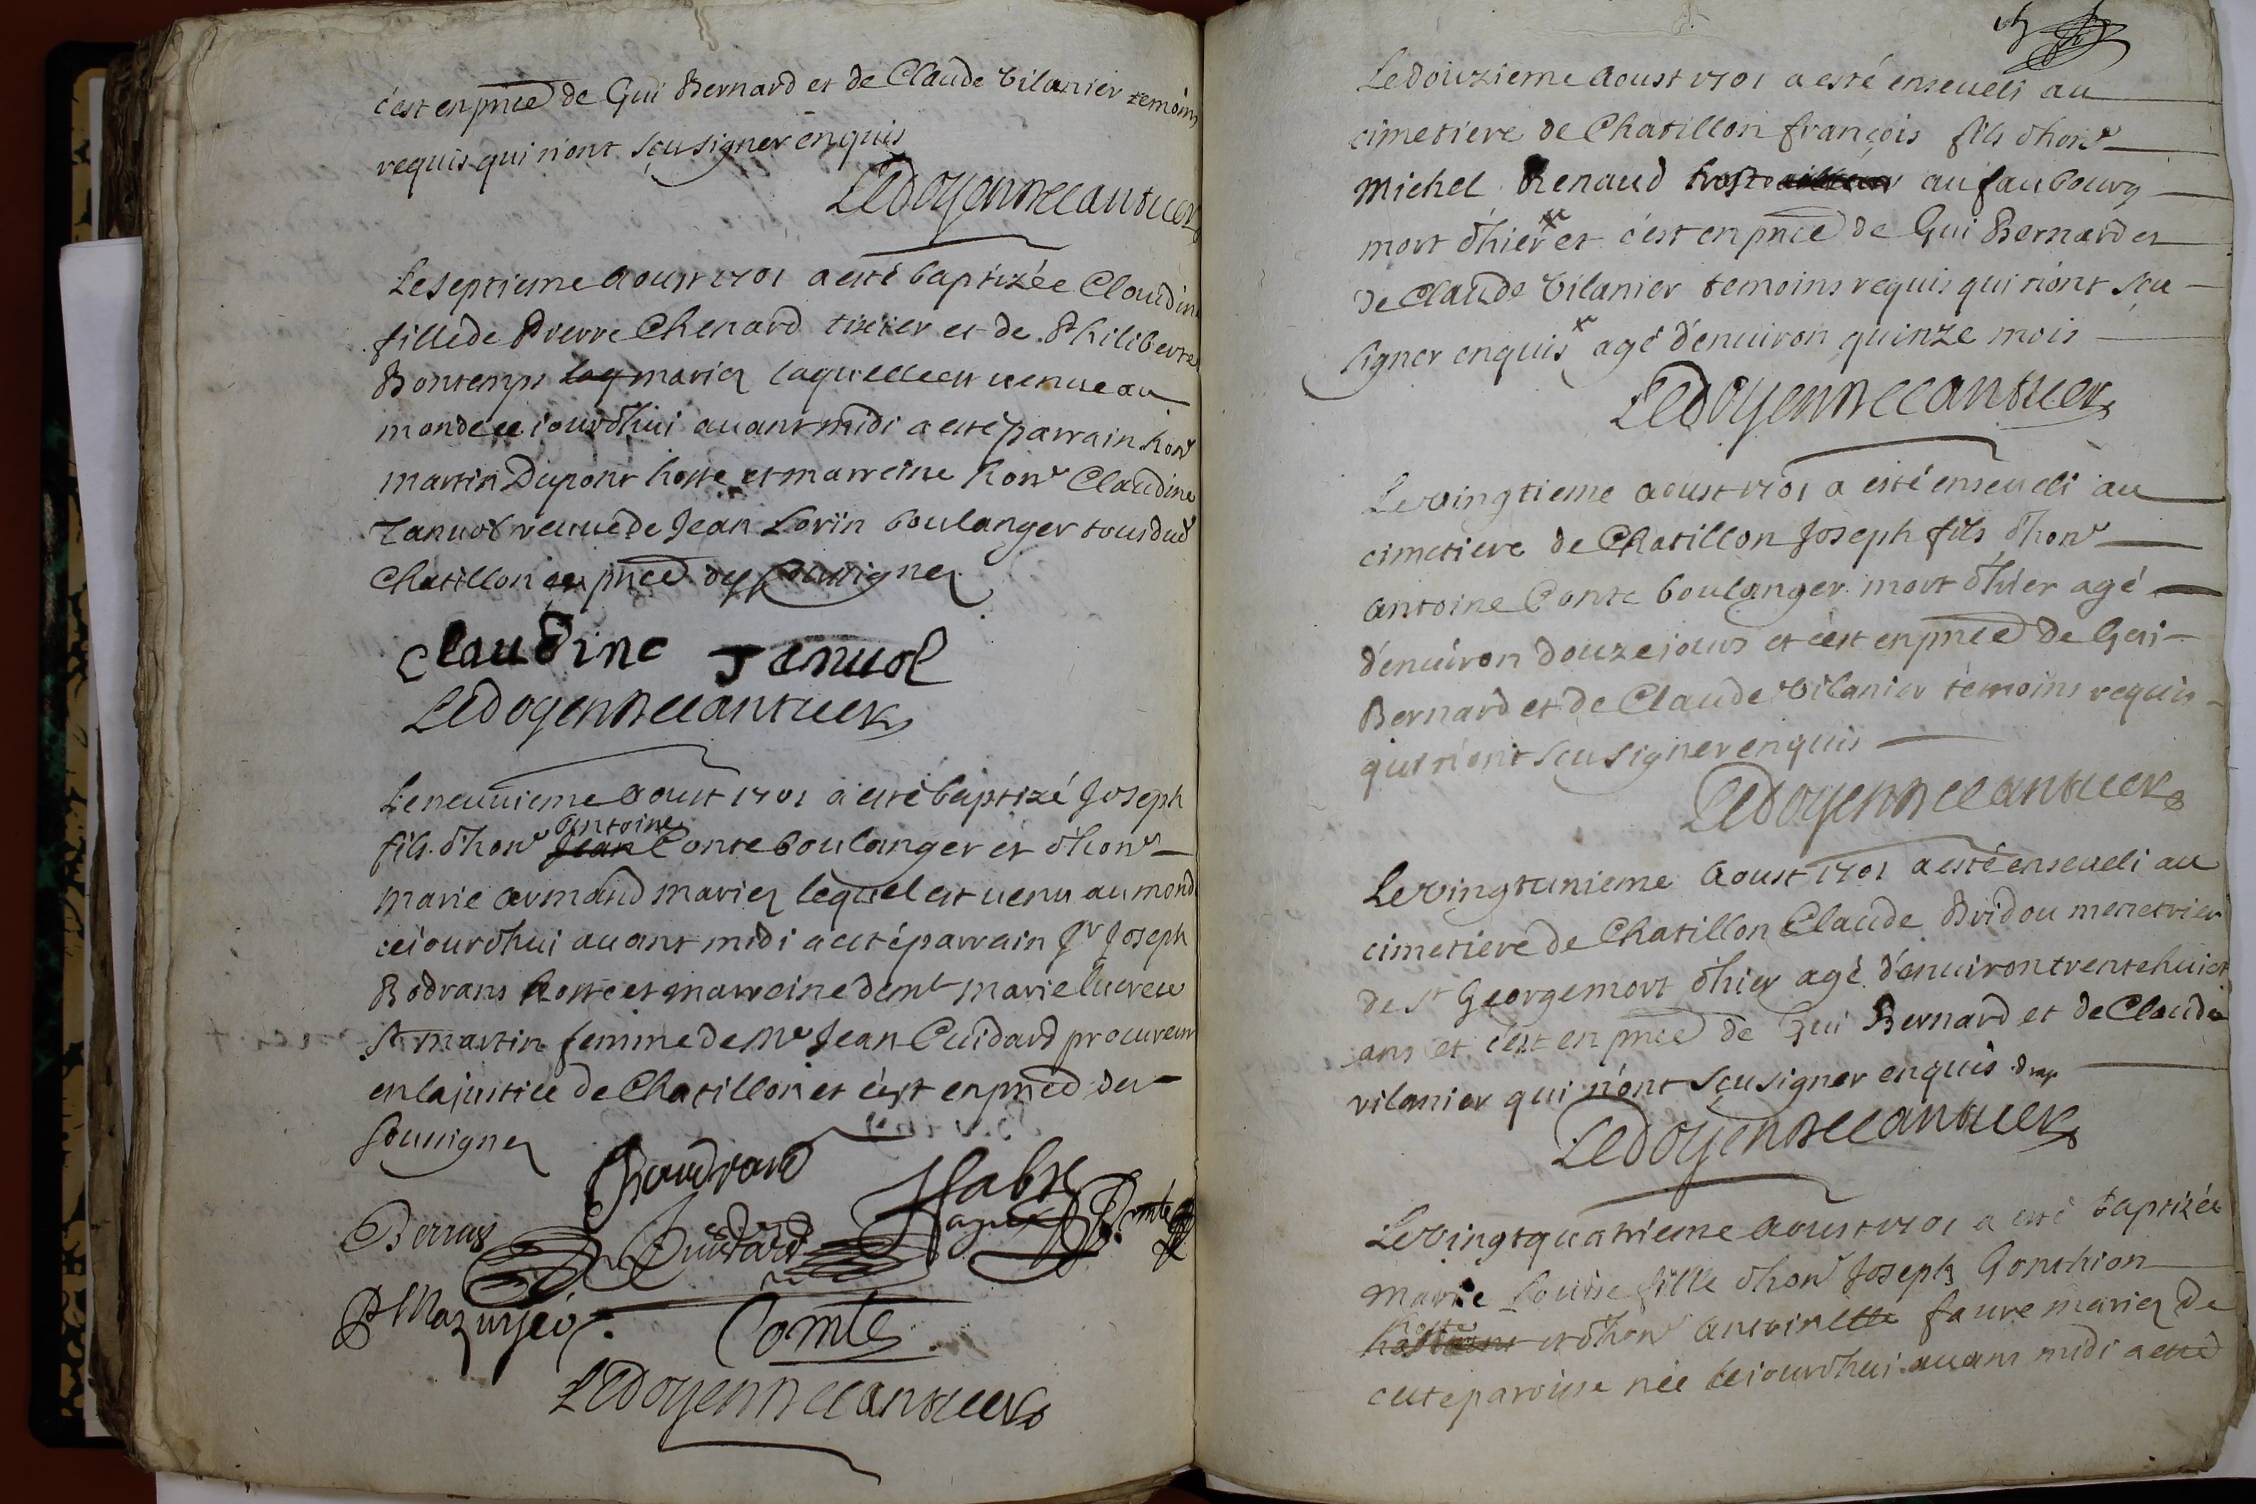 c'est en pnce de Gui Bernard et de Claude Vilanier temoins
requis qui n'ont sçu signer enquis
Le septieme Aoust 1701 a esté baptizée Claudine
fille de Pierre Chenard tixier et de Philiberte
Bontemps laq mariez laquelle est venue au
monde ce iourdhui avant midi a esté parrain hon^e
martin Dupont hoste et marreine hon^e Claudine
Janvol veuve de Jean Lorin boulanger tous dud
Chatillon en pnce des soussignez
Claudine Janvol
Le neuvieme Aoust 1701 a esté baptizé Joseph
antoine
fils d'hon^e Jean Conte boulanger et d'hon^e
marie armand mariez lequel est venu au monde
ce iourdhui avant midi a esté parrain S^r Joseph
Bodrans hoste et marreine dem^le marie lucrece
S^t martin femme de M^e Jean Cuidard procureur
en la justice de Chatillon et c'est en pnce des
soussignez
Comte
Le douzieme Aoust 1701 a esté enseveli au
cimetiere de Chatillon françois fils d'hon^e
Michel Renaud au faubourg
mort d'hier et c'est en pnce de Gui Bernard et
de Claude Vilanier temoins requis qui n'ont sçu
signer enquis agé d'environ quinze mois
Le vingtieme aoust 1701 a esté enseveli au
cimetiere de Chatillon Joseph fils d'hon^e
antoine Conte boulanger mort d'hier agé
d'environ douze iours et c'est en pnce de Gui
Bernard et de Claude Vilanier temoins requis
qui n'ont sçu signer enquis
Le vingtunieme Aoust 1701 a esté enseveli au
cimetiere de Chatillon Claude Bridou menetrier
de S^t George mort d'hier agé d'environ trente huict
ans et c'est en pnce de Gui Bernard et de Claude
vilanier qui n'ont sçu signer enquis
Le vingtquatrieme Aoust 1701 a esté baptizée
Marie Louise fille d'hon^e Joseph Gonthion
hoste
et d'hon^e antoinette faure mariez de
cette paroisse née ce iourdhui avant midi a esté